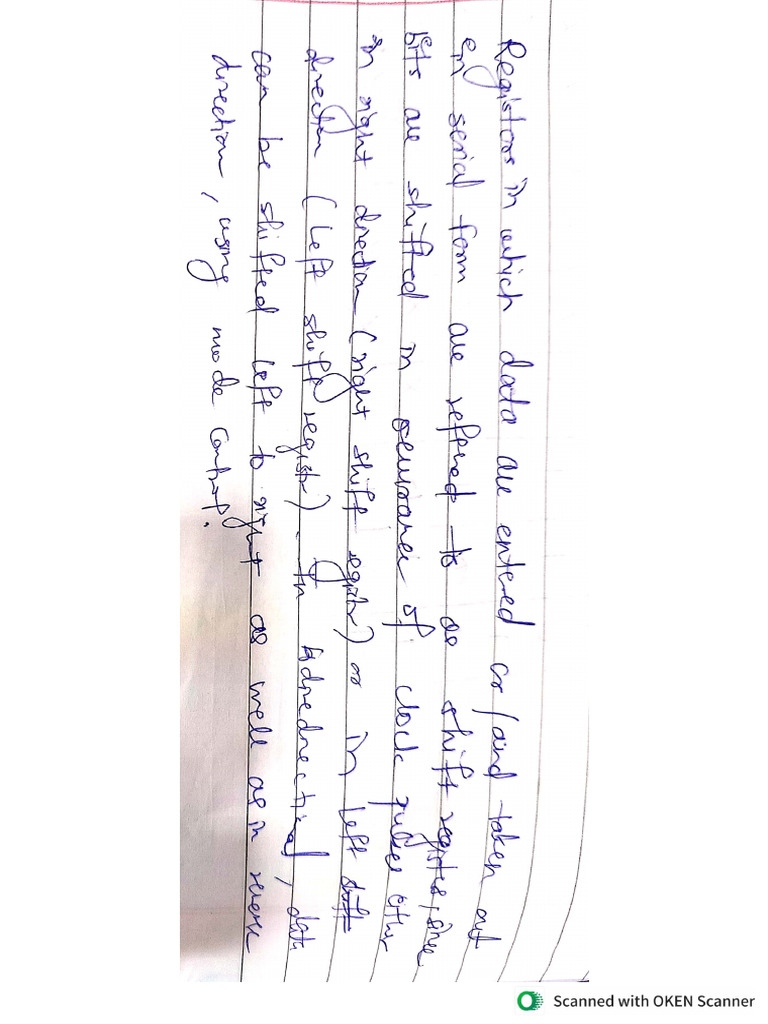 Registers in which data are entered or/and taken out
in serial form are referred to as shift register, since
bits are shifted in of clock pulses either
in right direction (right shift register) or in left
direction (left shift register). In bidirectional, data
can be shifted left to right as well as in reverse
direction, using mode control.
Scanned with OKEN Scanner